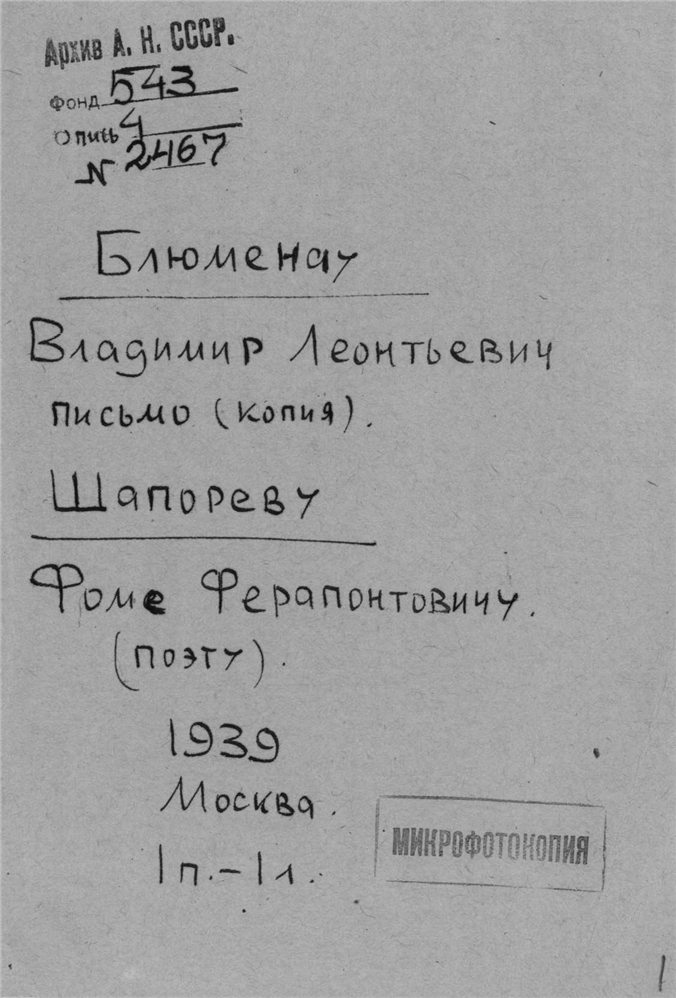 Архив А. Н. СССР.
Фонд 543
Опись 4
N 2467
Блюменау
Владимир Леонтьевич
письмо (копия).
Шапореву
Фоме Ферапонтовичу.
(поэту).
1939
Москва.
1п.-1л.
МИКРОФОТОКОПИЯ
1